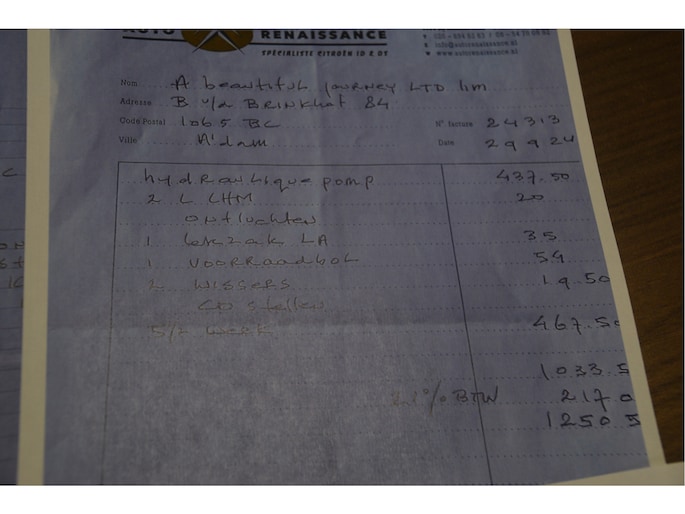 AUTO RENAISSANCE
SPÉCIALISTE CITROËN ID & DS
info@autorenaissance.nl
www.autorenaissance.nl
Nom A beautiful journey LTD lim
Adresse B v/d BRINKhof 84
Code Postal 1065 BC
Ville A'dam
N° facture 24313
Date 29 9 24
hydraulique pomp 437.50
2 L LHM 20
ontluchten
1 LA 35
1 voorraadbol 54
2 WISSERS 19.50
CO stellen
5 1/2 werk 467.50
1033.5
21% BTW 217.0
1250.5